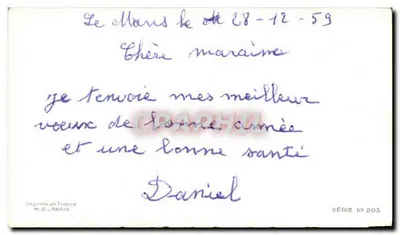 Le Mans le 28-12-59
Chère maraine
je t'envoie mes meilleur
voeux de bonne année
et une bonne santé
Daniel
Imprimé en France
M.D. - PARIS
SÉRIE No 203